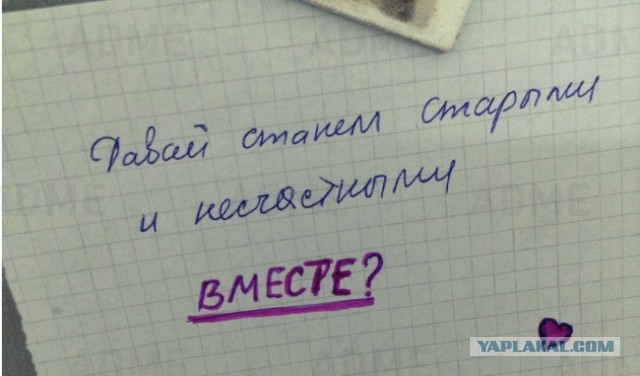 Давай станем старыми
и несчастными
ВМЕСТЕ?
YAPLAKAL.COM
ADME
ADME
ADME
ADME
ADME